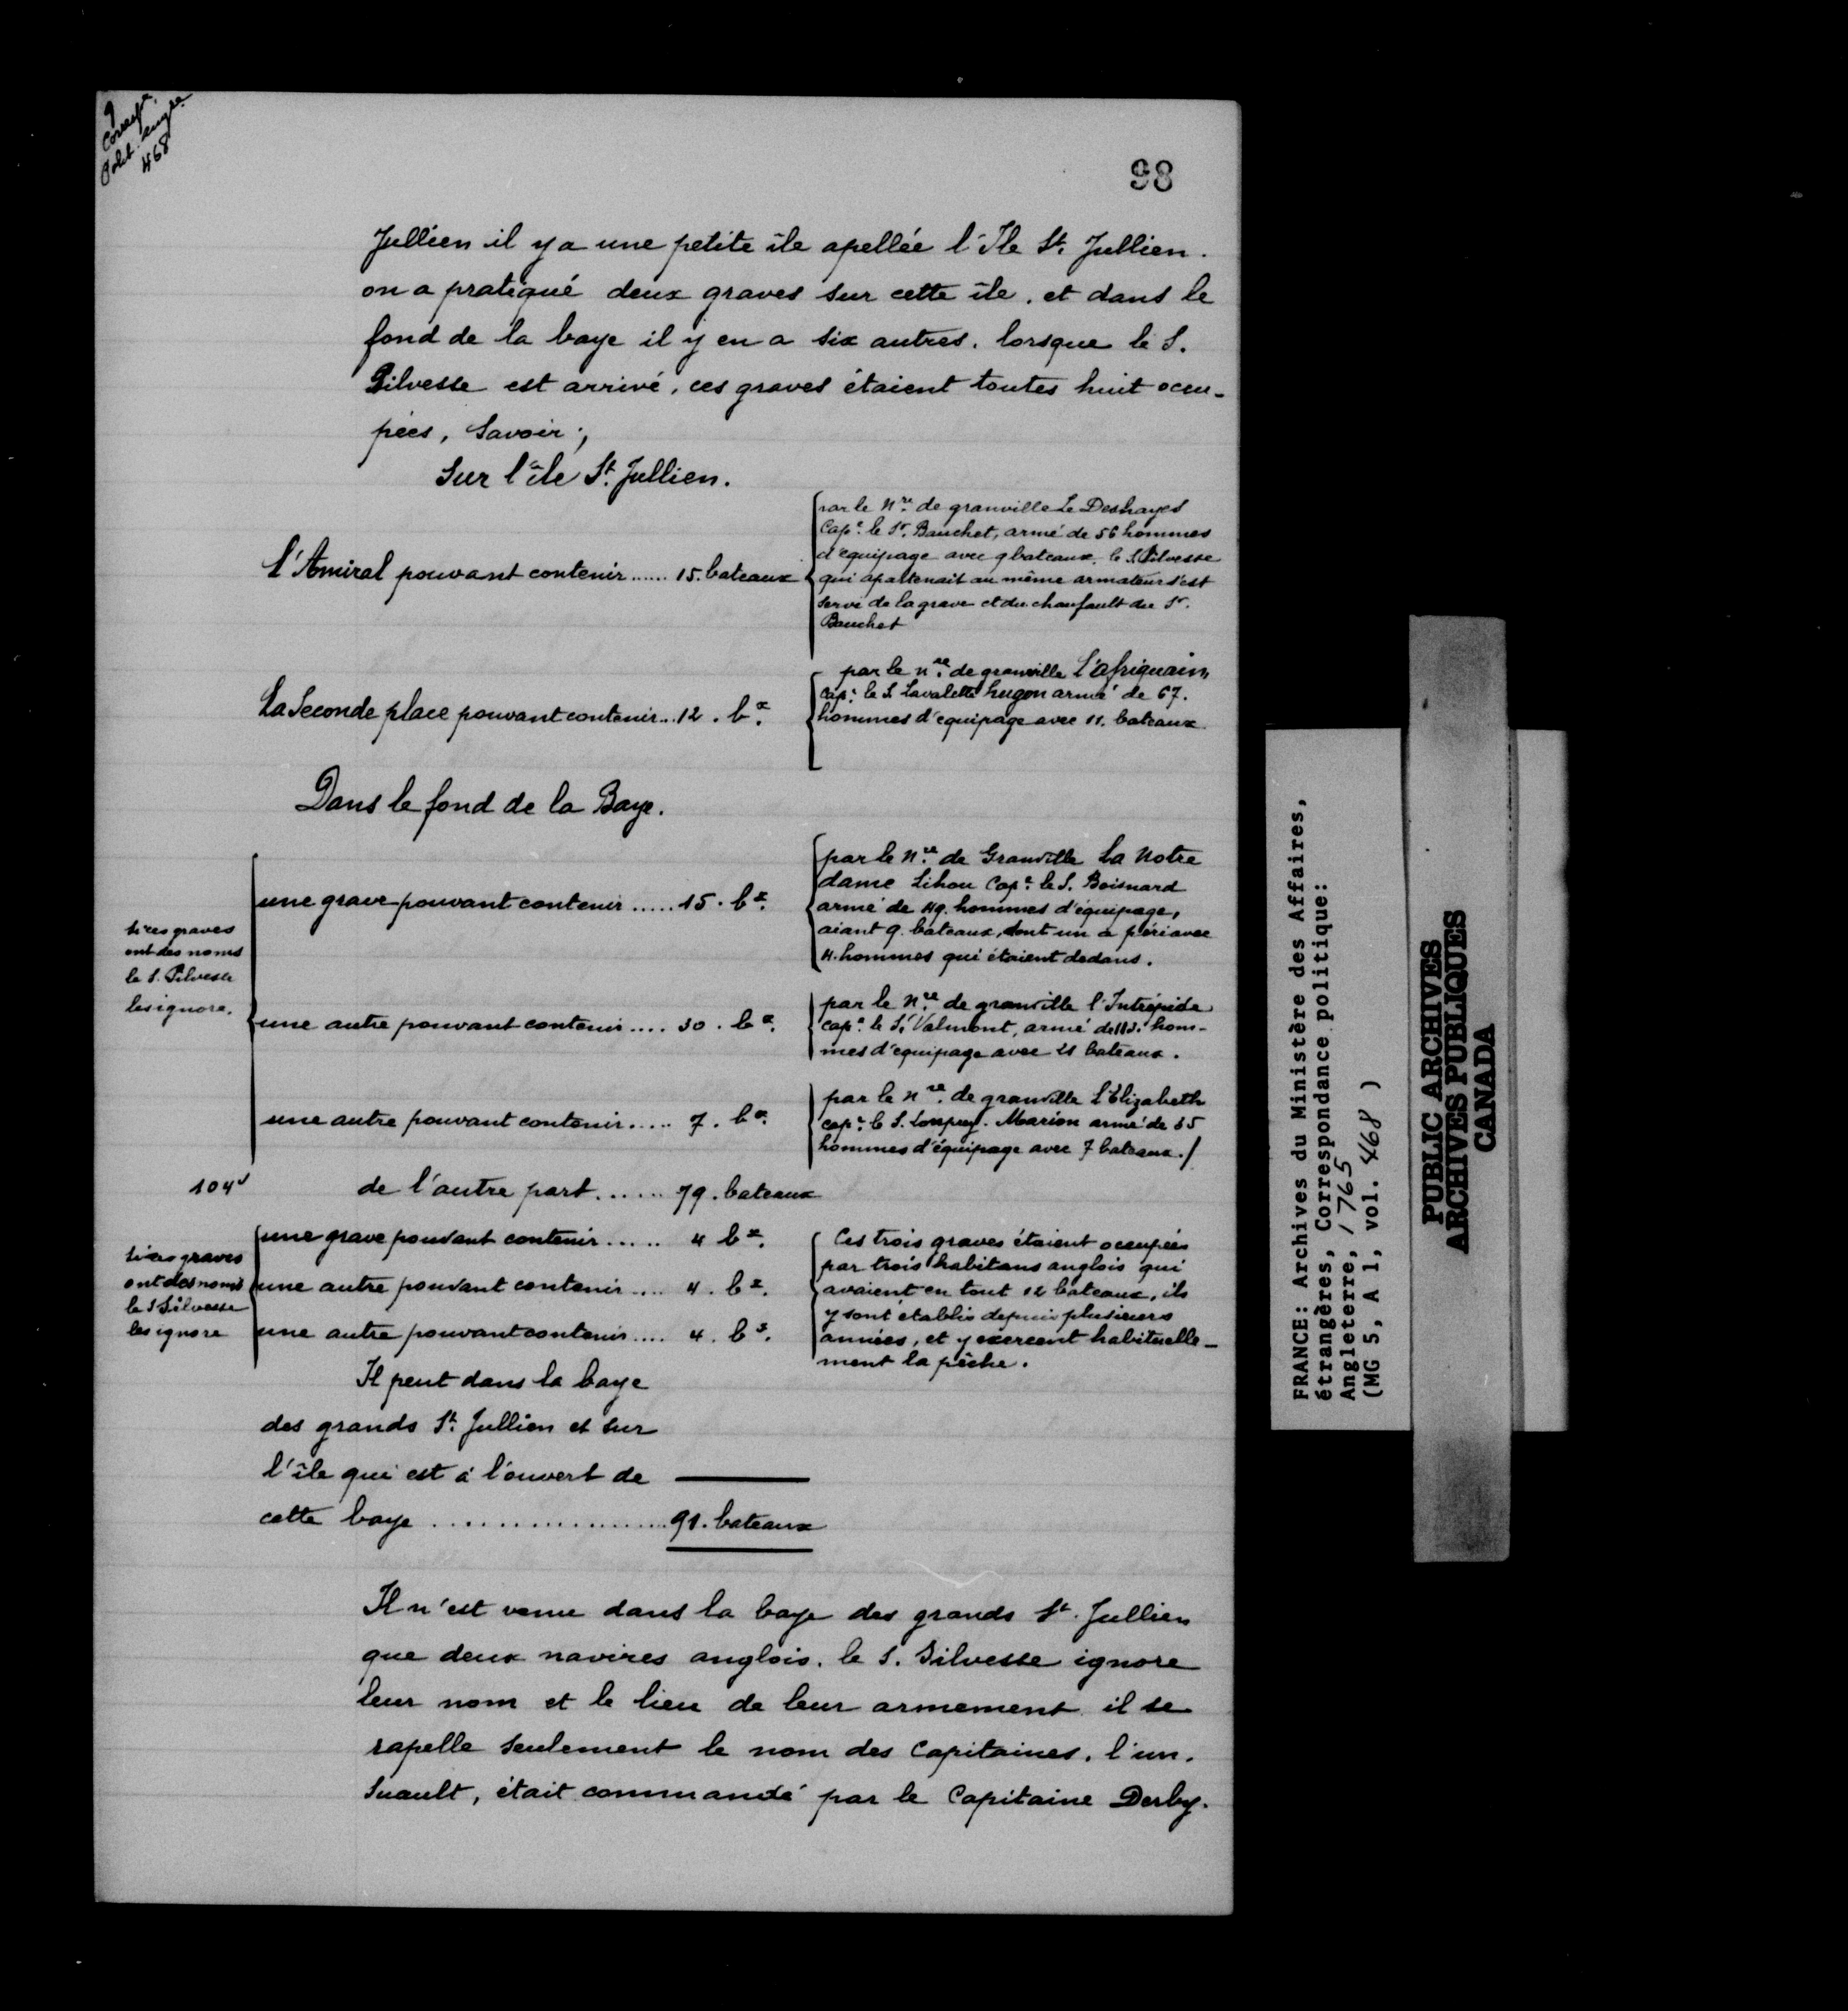 9
Corresp.
Polit. angle.
468
98
Jullien il y a une petite île apellée l'Ile St. Jullien.
on a pratiqué deux graves sur cette île, et dans le
fond de la baye il y en a six autres. lorsque le S.
Silvesse est arrivé, ces graves étaient toutes huit occu-
pées, Savoir;
Sur l'île St. Jullien.
l'Amiral pouvant contenir ...... 15. bateaux
par le Nre. de granville Le Deshayes
Cape. le Sr. Bauchet, armé de 56 hommes
d'equipage avec 9 bateaux. le S. Silvesse
qui apartenait au même armateur s'est
servi de la grave et du chaufault du Sr.
Bauchet
La Seconde place pouvant contenir... 12. bx.
par le nre. de granville l'afriquain,
cape. le S. Lavalette hugon armé de 67.
hommes d'equipage avec 11. bateaux
Dans le fond de la Baye.
si ces graves
ont des noms
le S. Silvesse
les ignore.
une grave pouvant contenir ..... 15. bx.
par le Nre. de Granville La Notre
dame Lihou Cape. le S. Boisnard
armé de 49. hommes d'équipage,
aiant 9. bateaux, dont un a péri avec
4. hommes qui étaient dedans.
une autre pouvant contenir .... 30. bx.
par le Nre. de granville l'Intrépide
cape. le Sr. Valmont, armé de 113. hom-
mes d'equipage avec 21 bateaux.
une autre pouvant contenir ..... 7. bx.
par le nre. de granville L'Elizabeth
cape. le S. Marion armé de 35
hommes d'équipage avec 7 bateaux./
104v
de l'autre part ...... 79. bateaux
si ces graves
ont des noms
le S Silvesse
les ignore
une grave pouvant contenir ...... 4 bx.
une autre pouvant contenir .... 4. bx.
une autre pouvant contenir .... 4. bx.
Ces trois graves étaient occupées
par trois habitans anglois qui
avaient en tout 12 bateaux, ils
y sont établis depuis plusieurs
années, et y exercent habituelle-
ment la pêche.
Il peut dans la baye
des grands St. Jullien et sur
l'île qui est à l'ouvert de
cette baye .................. 91. bateaux
Il n'est venu dans la baye des grands St. Jullien
que deux navires anglois. le S. Silvesse ignore
leur nom et le lieu de leur armement il se
rapelle seulement le nom des Capitaines. l'un.
Suault, était commandé par le Capitaine Derby.
FRANCE: Archives du Ministère des Affaires,
étrangères, Correspondance politique:
Angleterre, 1765
(MG 5, A 1, vol. 468 )
PUBLIC ARCHIVES
ARCHIVES PUBLIQUES
CANADA